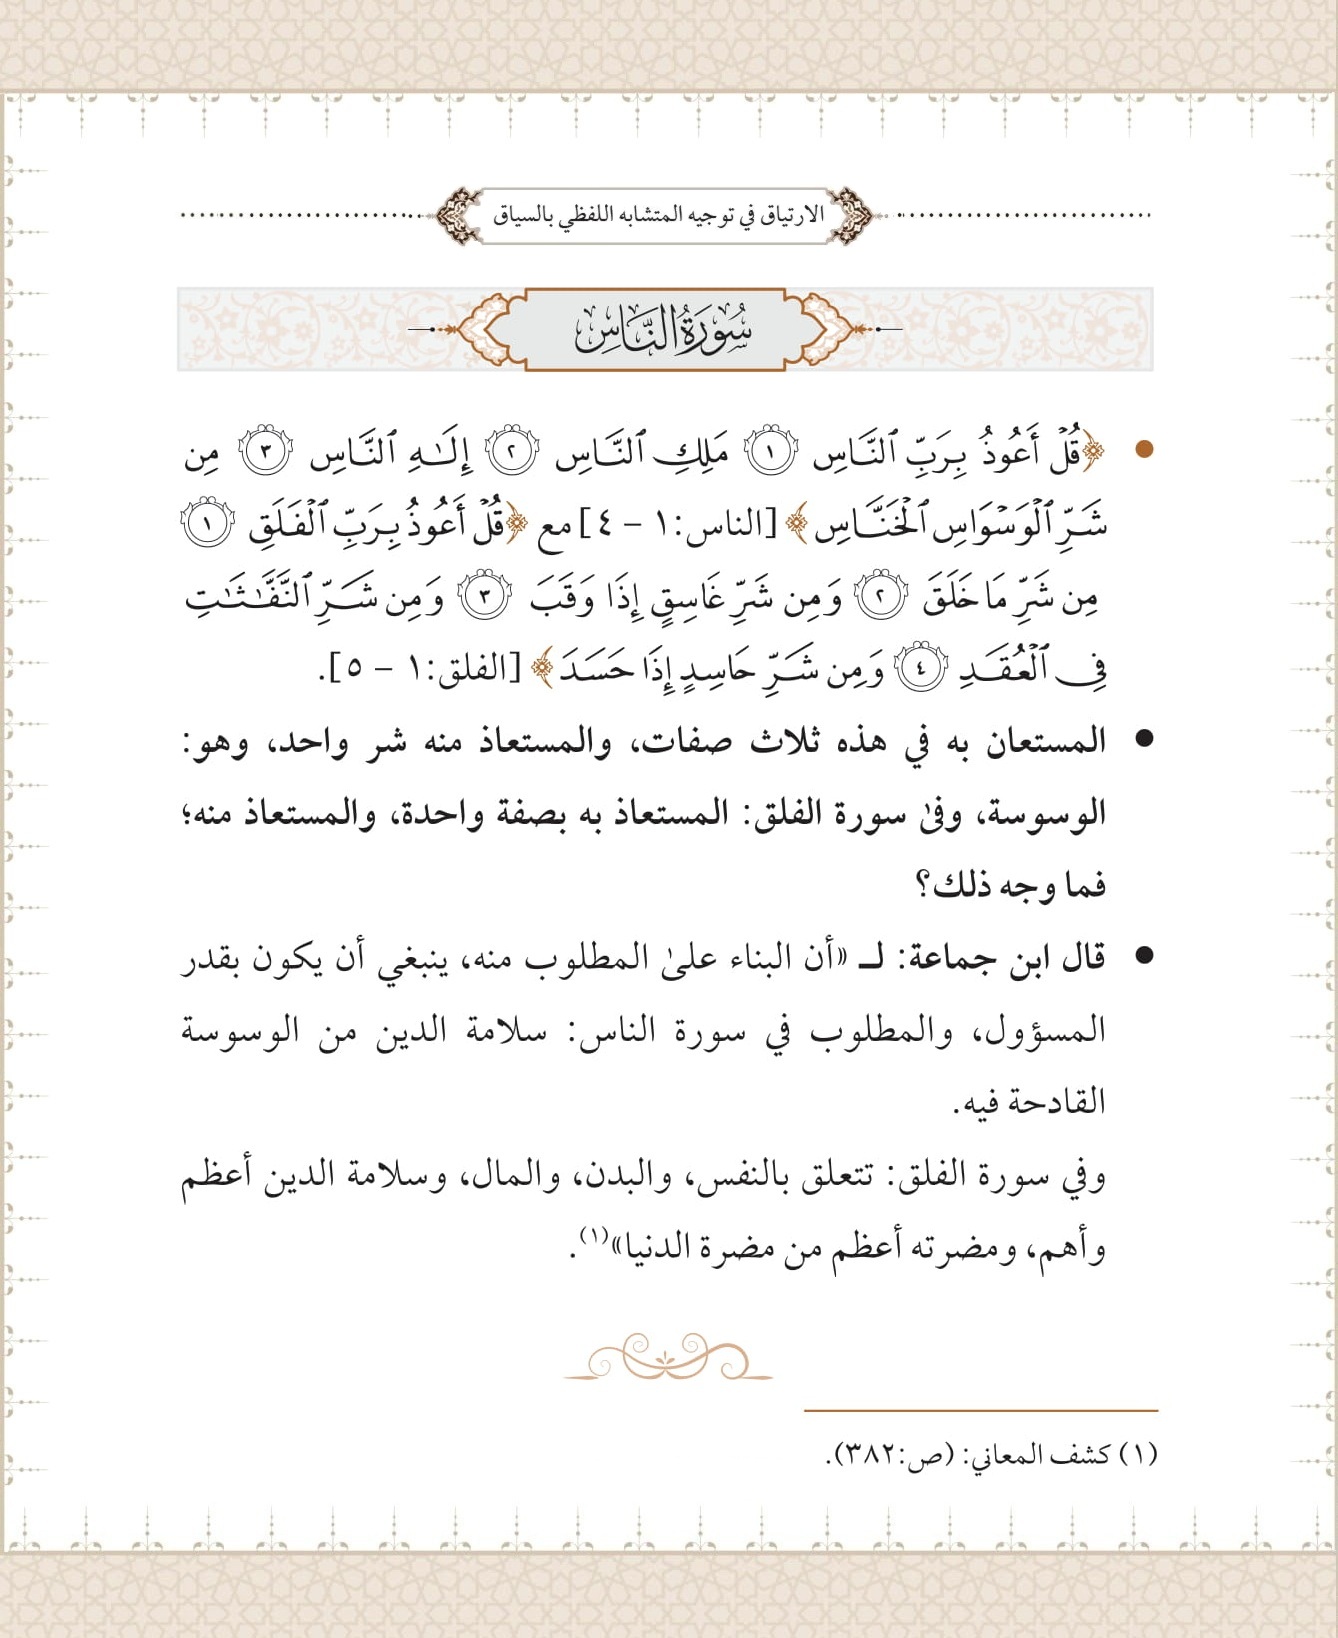 الارتياق في توجيه المتشابه اللفظي بالسياق
سُورَةُ النَّاسِ
﴿قُلۡ أَعُوذُ بِرَبِّ ٱلنَّاسِ ١ مَلِكِ ٱلنَّاسِ ٢ إِلَٰهِ ٱلنَّاسِ ٣ مِن
شَرِّ ٱلۡوَسۡوَاسِ ٱلۡخَنَّاسِ﴾ [الناس:١ - ٤] مع ﴿قُلۡ أَعُوذُ بِرَبِّ ٱلۡفَلَقِ ١
مِن شَرِّ مَا خَلَقَ ٢ وَمِن شَرِّ غَاسِقٍ إِذَا وَقَبَ ٣ وَمِن شَرِّ ٱلنَّفَّٰثَٰتِ
فِي ٱلۡعُقَدِ ٤ وَمِن شَرِّ حَاسِدٍ إِذَا حَسَدَ﴾ [الفلق:١ - ٥].
● المستعان به في هذه ثلاث صفات، والمستعاذ منه شر واحد، وهو:
الوسوسة، وفىٰ سورة الفلق: المستعاذ به بصفة واحدة، والمستعاذ منه؛
فما وجه ذلك؟
● قال ابن جماعة: لـ «أن البناء علىٰ المطلوب منه، ينبغي أن يكون بقدر
المسؤول، والمطلوب في سورة الناس: سلامة الدين من الوسوسة
القادحة فيه.
وفي سورة الفلق: تتعلق بالنفس، والبدن، والمال، وسلامة الدين أعظم
وأهم، ومضرته أعظم من مضرة الدنيا»(١).
(١) كشف المعاني: (ص:٣٨٢).